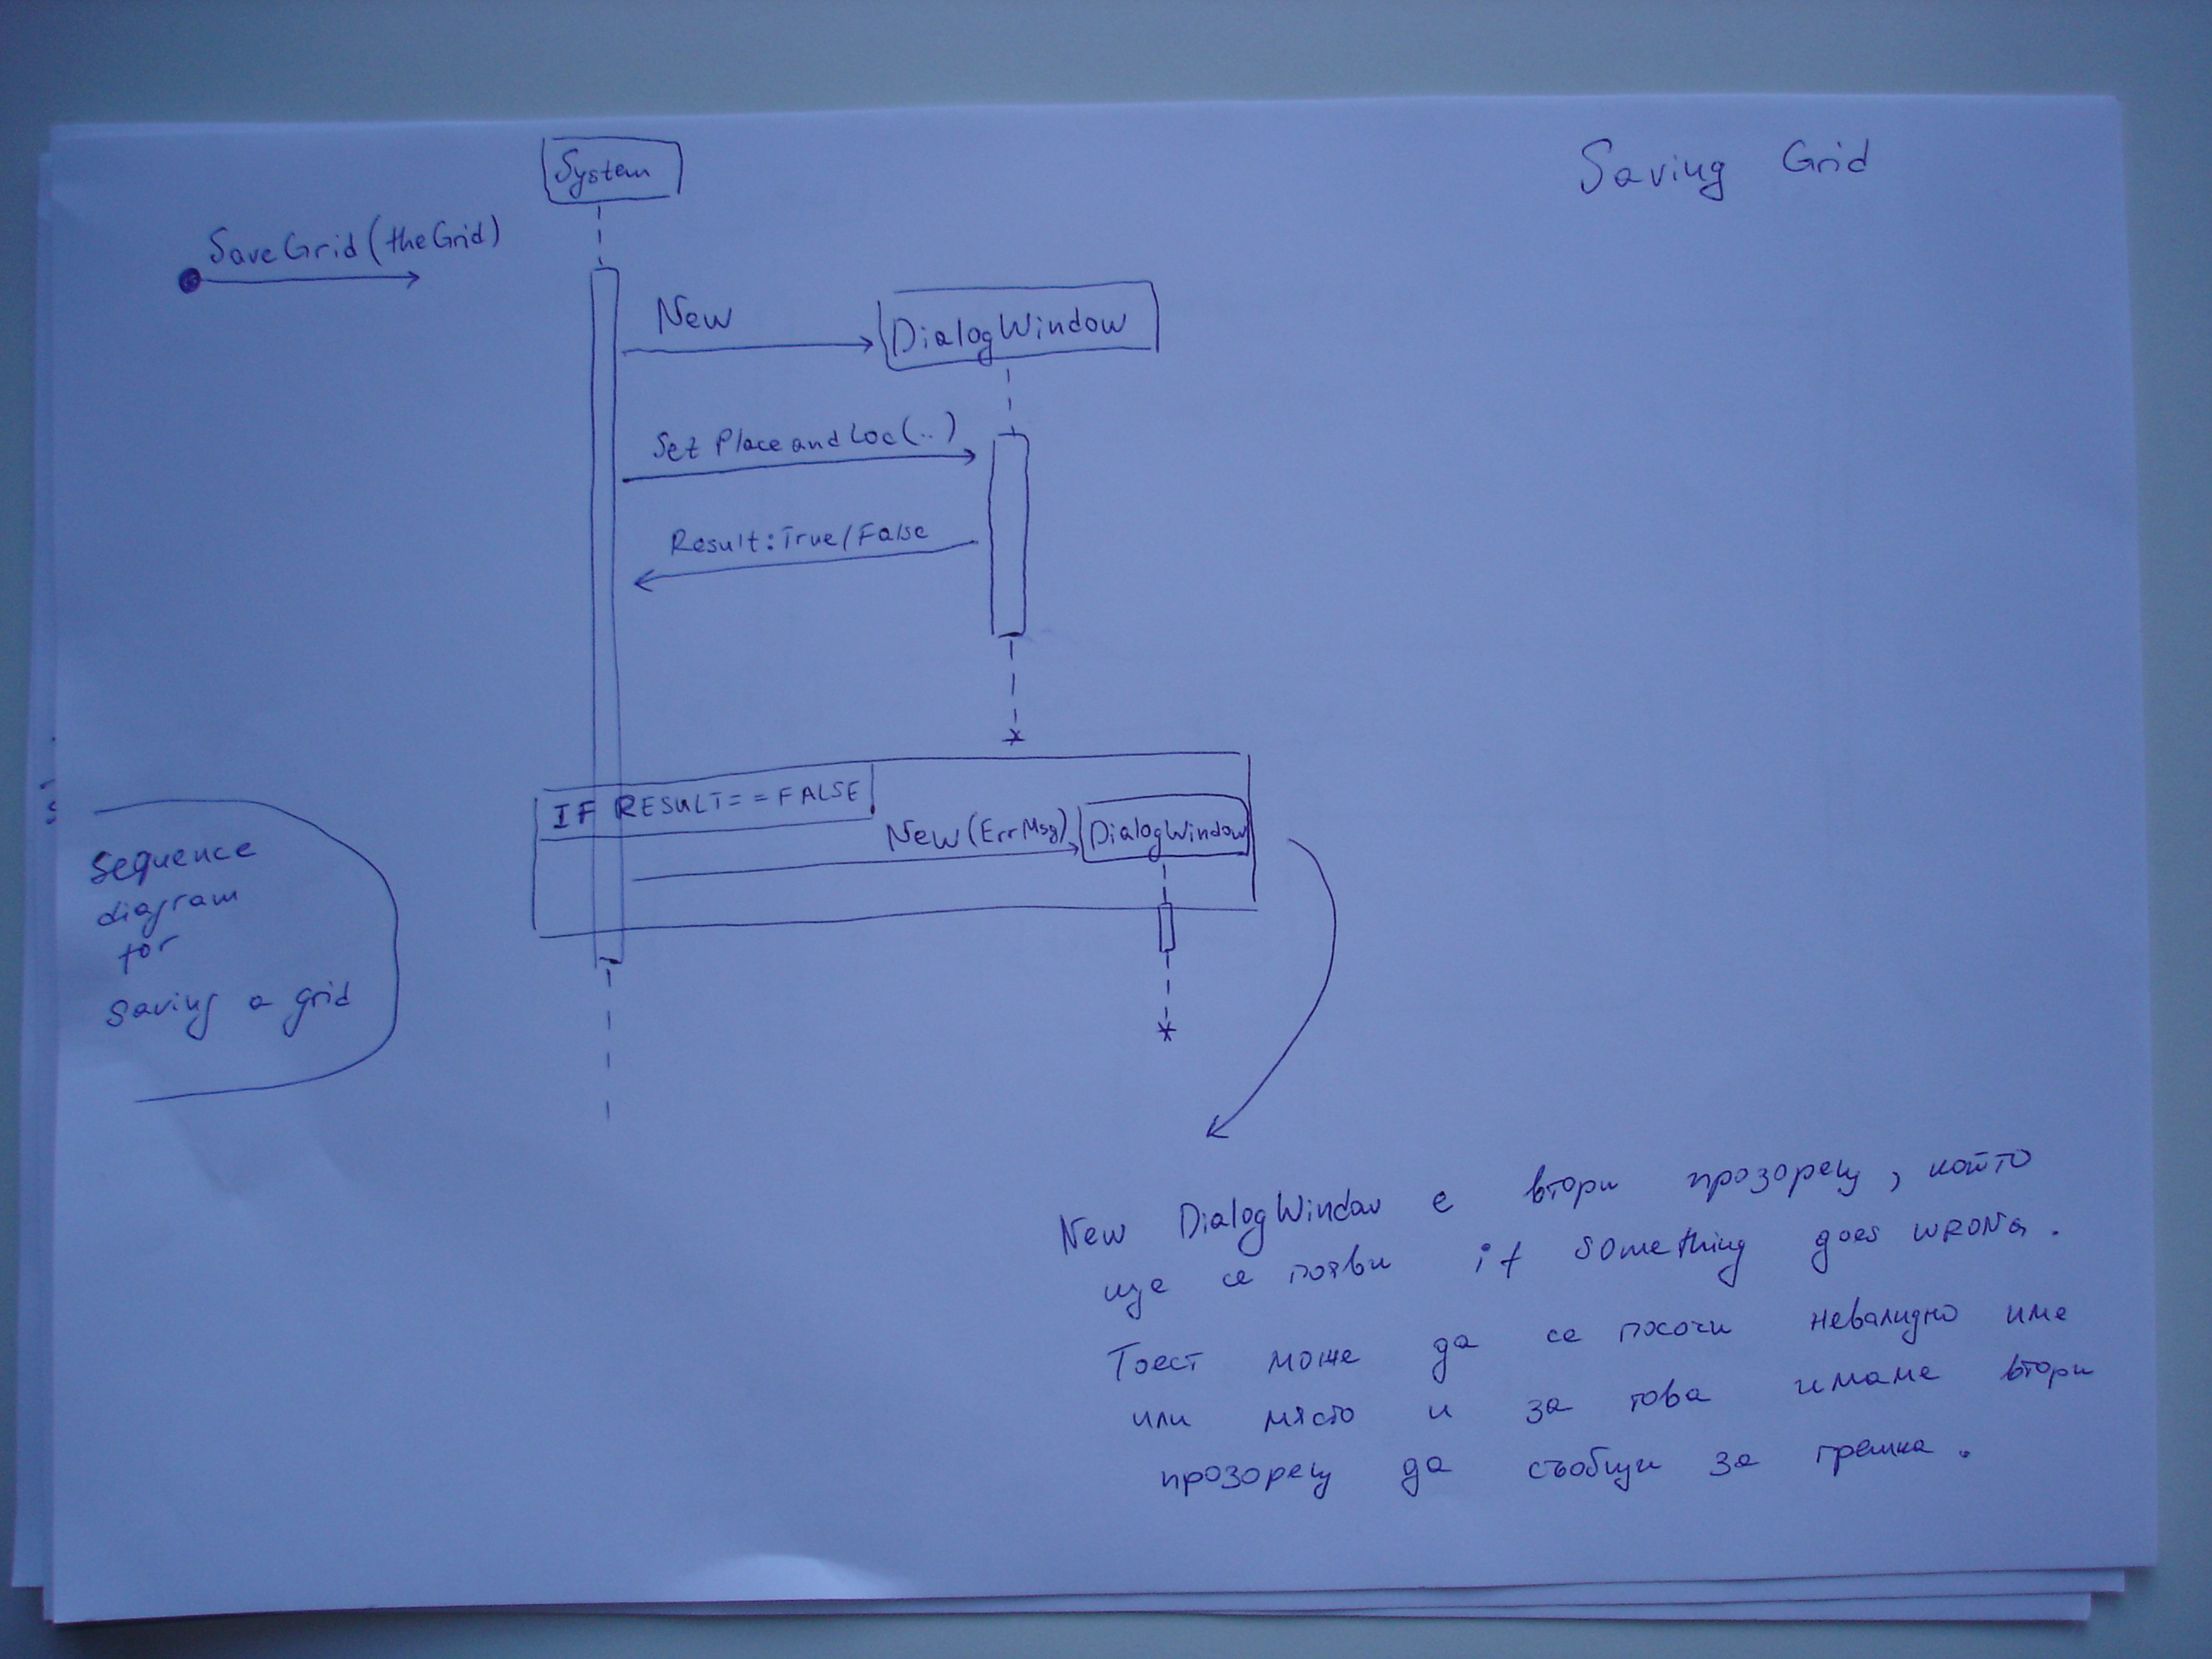 Saving Grid
System
SaveGrid(theGrid)
New
DialogWindow
Set Place and Loc(..)
Result:True/False
IF RESULT==FALSE
New(ErrMsg)
DialogWindow
Sequence
diagram
for
saving a grid
New DialogWindow е втори прозорец, който
ще се появи if something goes WRONG.
Тоест може да се посочи невалидно име
или място и за това имаме втори
прозорец да съобщи за грешка.